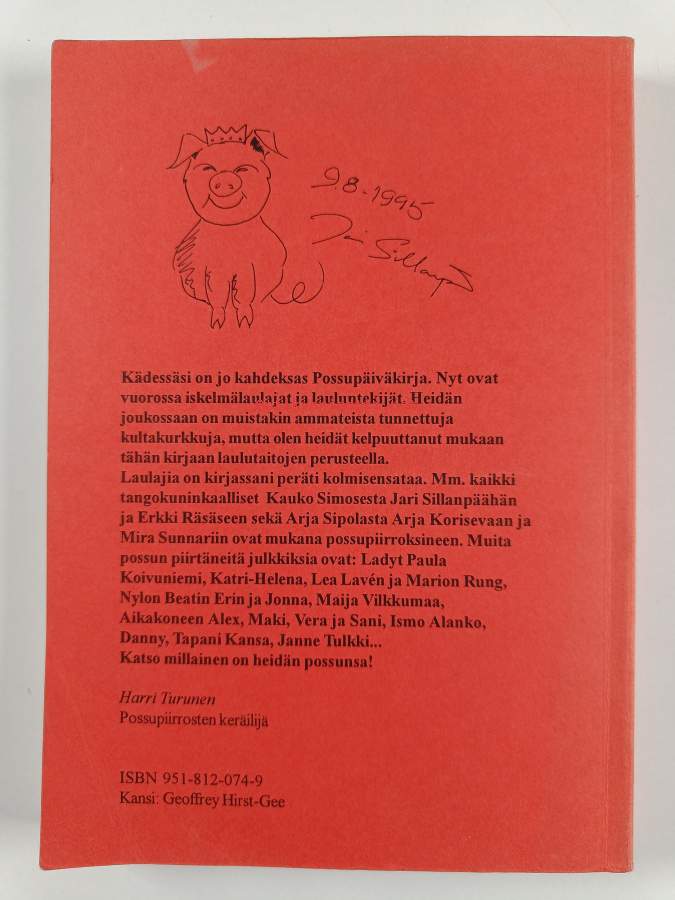 9.8.-1995
Jari Sillanpää
Kädessäsi on jo kahdeksas Possupäiväkirja. Nyt ovat
vuorossa iskelmälaulajat ja lauluntekijät. Heidän
joukossaan on muistakin ammateista tunnettuja
kultakurkkuja, mutta olen heidät kelpuuttanut mukaan
tähän kirjaan laulutaitojen perusteella.
Laulajia on kirjassani peräti kolmisensataa. Mm. kaikki
tangokuninkaalliset Kauko Simosesta Jari Sillanpäähän
ja Erkki Räsäseen sekä Arja Sipolasta Arja Korisevaan ja
Mira Sunnariin ovat mukana possupiirroksineen. Muita
possun piirtäneitä julkkiksia ovat: Ladyt Paula
Koivuniemi, Katri-Helena, Lea Lavén ja Marion Rung,
Nylon Beatin Erin ja Jonna, Maija Vilkkumaa,
Aikakoneen Alex, Maki, Vera ja Sani, Ismo Alanko,
Danny, Tapani Kansa, Janne Tulkki...
Katso millainen on heidän possunsa!
Harri Turunen
Possupiirrosten keräilijä
ISBN 951-812-074-9
Kansi: Geoffrey Hirst-Gee